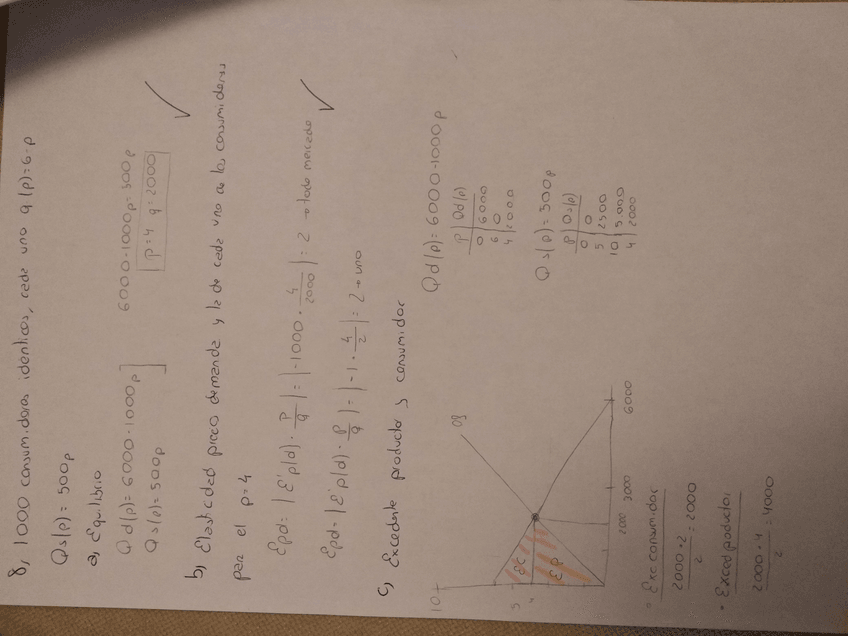 8, 1000 consumidores identicos, cada uno q(p)=6-p
Qs(p)= 500p
a, Equilibrio
Qd(p)= 6000-1000p
Qs(p)= 500p
6000-1000p=500p
p=4 q=2000
b) Elasticidad precio demanda y la de cada uno de los consumidores
para el p=4
Epd= |E'p(d)· p/q| = |-1000· 4/2000| = 2 → todo mercado
Epd= |E'p(d)· p/q| = |-1· 4/2| = 2 → uno
c, Excedente productor y consumidor
Qd(p)= 6000-1000p
p | Qd(p)
0 | 6000
6 | 0
4 | 2000
Qs(p)= 500p
p | Qs(p)
0 | 0
5 | 2500
10 | 5.000
4 | 2000
10
5
4
EC
EP
2000
3000
6000
• Exc consumidor
2000·2/2 = 2000
• Exced productor
2000·4/2 = 4000